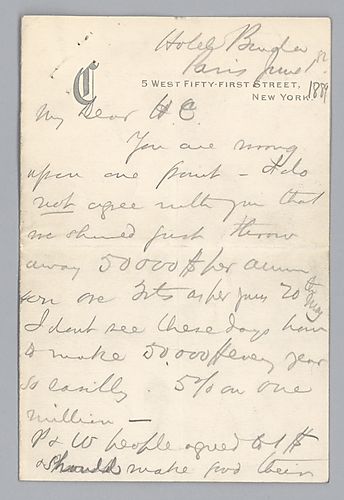 Hotel Binda
Paris June 1st
C
5 WEST FIFTY-FIRST STREET,
NEW YORK. 1889
My Dear H C
You are wrong
upon one point - I do
not agree with you that
we should just throw
away 50000 $ per annum
as per yours 20th May
I dont see these days how
to make 50,000 $ every year
so easily. 5% on one
million —
P & W people agreed to 1 $
& should make good their